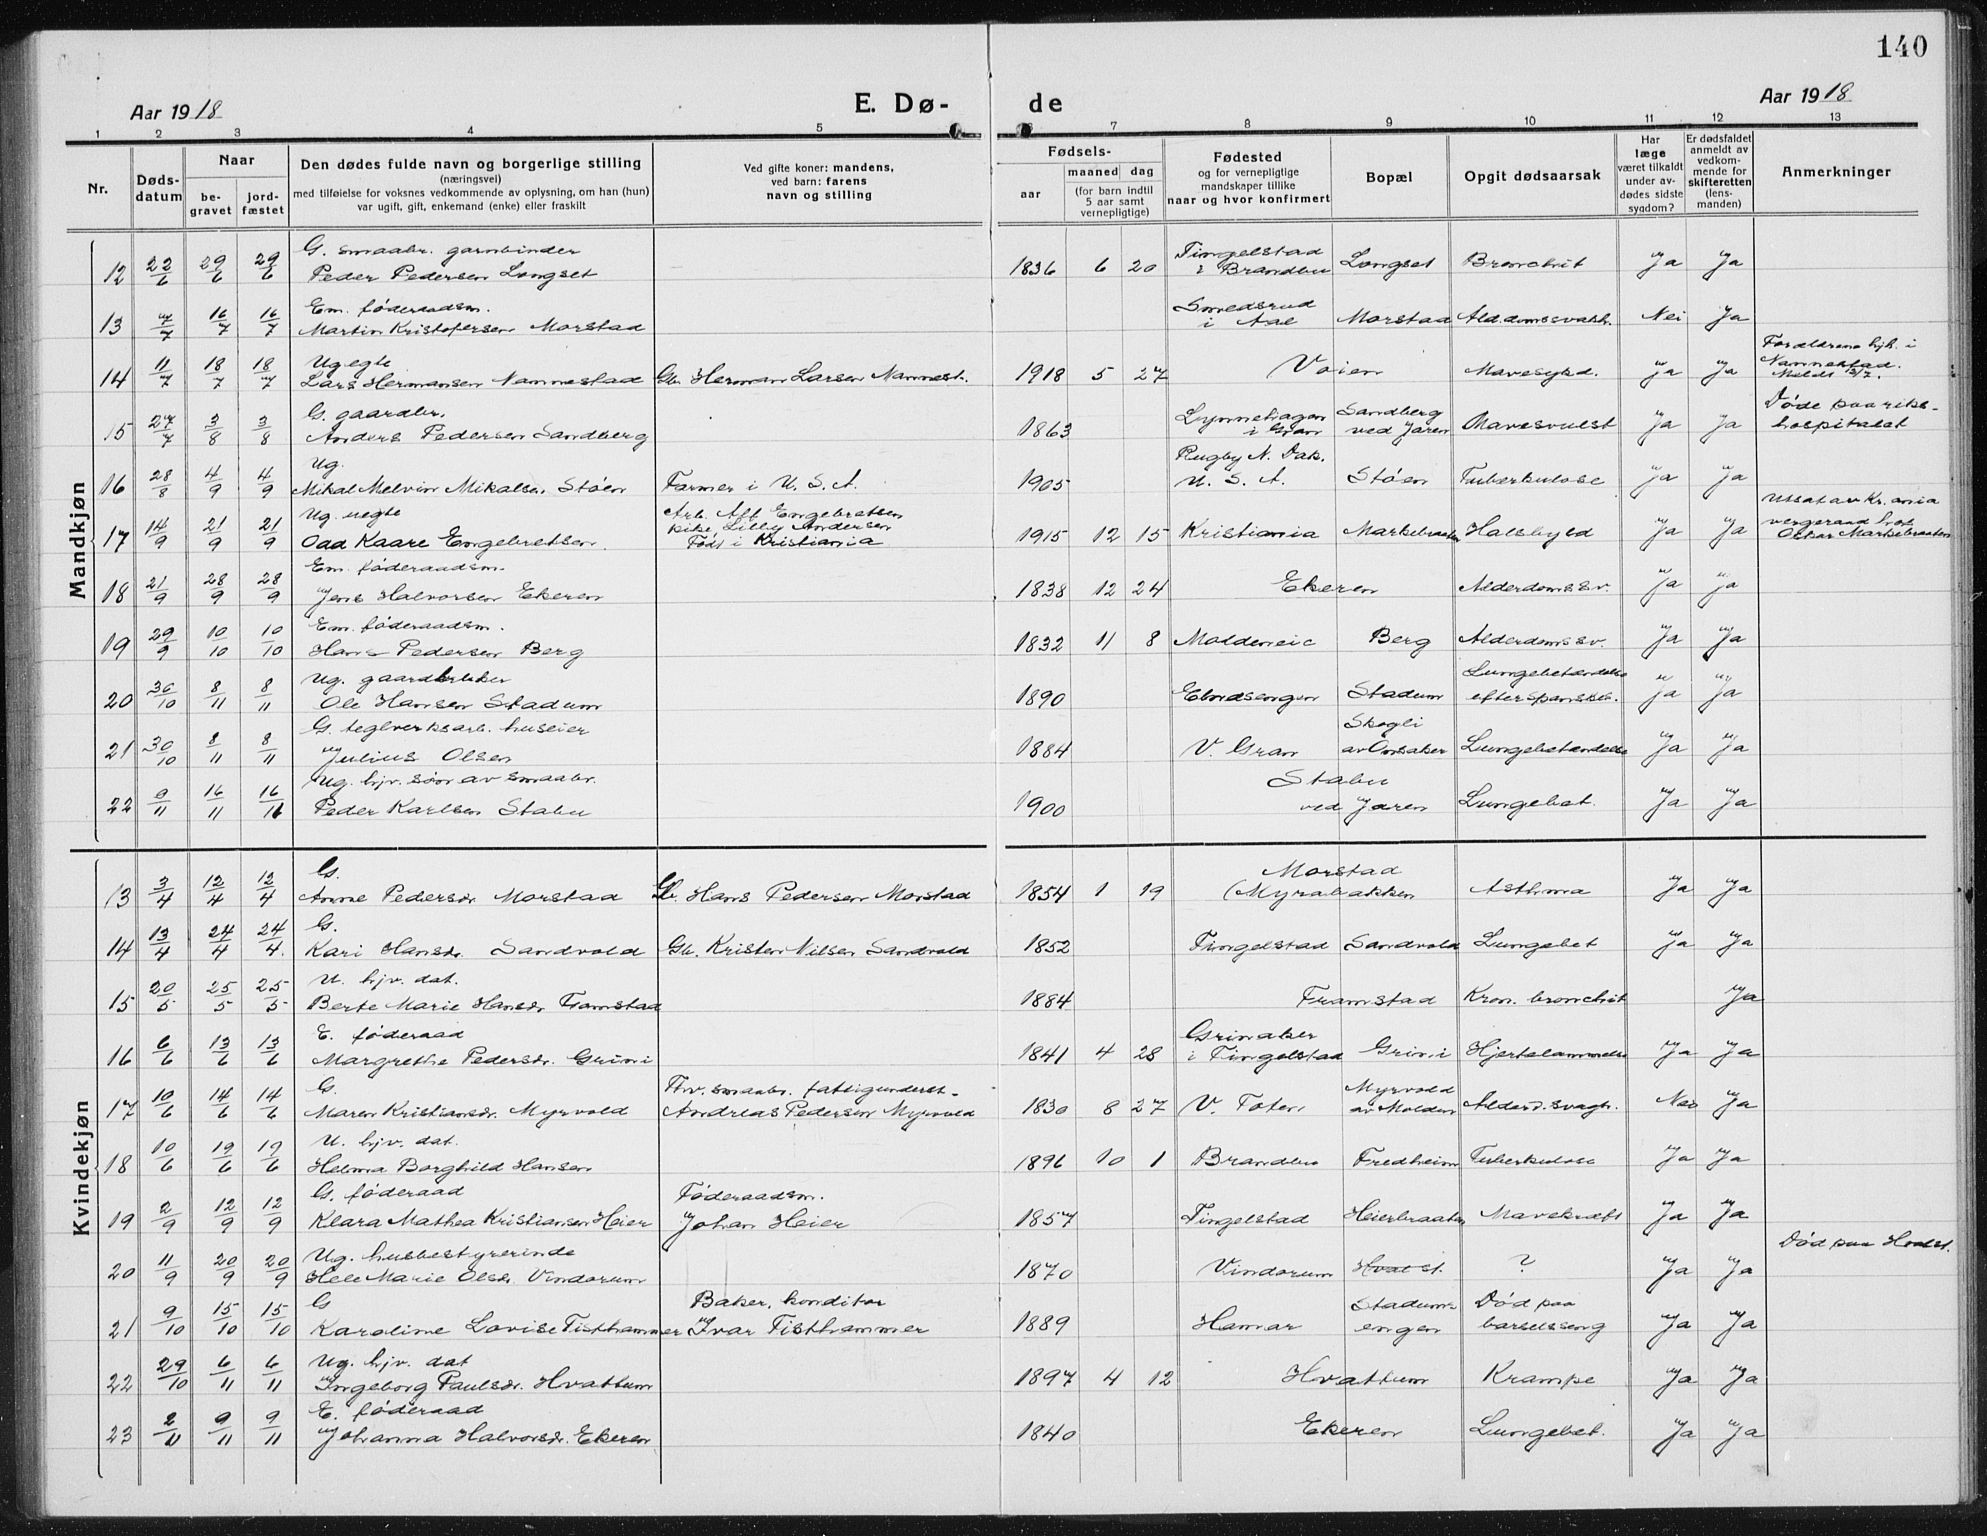 140
Aar 1918 E. Dø- de Aar 1918
1 2 3 4 5 6 7 8 9 10 11 12 13
Nr. Døds-datum Naar be-gravet jord-fæstet Den dødes fulde navn og borgerlige stilling (næringsvei) med tilføielse for voksnes vedkommende av oplysning, om han (hun) var ugift, gift, enkemand (enke) eller fraskilt Ved gifte koner: mandens, ved barn: farens navn og stilling Fødsels- aar maaned dag (for barn indtil 5 aar samt vernepligtige) Fødested og for vernepligtige mandskaper tillike naar og hvor konfirmert Bopæl Opgit dødsaarsak Har læge været tilkaldt under av-dødes sidste sygdom? Er dødsfaldet anmeldt av vedkom-mende for skifteretten (lens-manden) Anmerkninger
Mandkjøn
G. smaabr. garnbinder Tingelstad
12 22/6 29/6 29/6 Peder Pedersen Longset 1836 6 20 i Brandbu Longset Bronchit Ja Ja
Em. føderaadsm. Smedsrud
13 7/7 16/7 16/7 Martin Kristofersen Morstad i Aal Morstad Ald.domssvakh. Nei Ja
Ug egte Forældrene hjh. i
14 11/7 18/7 18/7 Lars Hermansen Nannestad Gb. Herman Larsen Nannest. 1918 5 27 Voien Mavesykd. Ja Ja Nannestad. Meldt 13/7.
G. gaardbr. Sandberg Døde paa riks-
15 27/7 3/8 3/8 Anders Pedersen Sandberg 1863 Lynnehagen i Gran ved Jaren Mavesvulst Ja Ja hospitalet
Ug. Rugby N. Dak.
16 28/8 4/9 4/9 Mikal Melvin Mikalsen Støen Farmer i U. S. A. 1905 U. S. A. Støen Tuberkulose Ja Ja
Ug. uegte Arb. Alf Engebretsen pike Lilly Andersen Utsat av Kr.ania
17 14/9 21/9 21/9 Odd Kaare Engebretsen Født i Kristiania 1915 12 15 Kristiania Markebraaten Halsbyld Ja Ja vergeraad hos Oskar Markebraaten
Em. føderaadsm.
18 21/9 28/9 28/9 Jens Halvorsen Ekeren 1838 12 24 Ekeren Alderdomssv. Ja Ja
Em. føderaadsm.
19 29/9 10/10 10/10 Hans Pedersen Berg 1832 11 8 Moldeneie Berg Alderdomssv. Ja Ja
Ug. gaardbruker Lungebetændelse
20 30/10 8/11 8/11 Ole Hansen Stadum 1890 Elvdsengen Stadum efter spanskes. Ja Ja
G. teglverksarb. huseier Skogli
21 30/10 8/11 8/11 Julius Olsen 1884 V. Gran av Onsaker Lungebetændelse Ja Ja
Ug. hjv. søn av smaabr. Stabu
22 9/11 16/11 16/11 Peder Karlsen Stabu 1900 ved Jaren Lungebet. Ja Ja
Kvindekjøn
G. Morstad
13 3/4 12/4 12/4 Anne Pedersdr. Morstad Gb. Hans Pedersen Morstad 1854 1 19 (Myrabakken Asthma Ja Ja
G.
14 13/4 24/4 24/4 Kari Hansdr. Sandvold Gb. Kristen Nilsen Sandvold 1852 Tingelstad Sandvold Lungebet Ja Ja
U. hjv. dat.
15 20/5 25/5 25/5 Berte Marie Hansdr. Framstad 1884 Framstad Kron. bronchit Ja
E. føderaad Grinaker
16 6/6 13/6 13/6 Margrethe Pedersdr. Grini 1841 4 28 i Tingelstad Grini Hjertelammelse Ja Ja
G. Fhv. smaabr. fattigunderst. Myrvold
17 10/6 14/6 14/6 Maren Kristiansdr. Myrvold Andreas Pedersen Myrvold 1830 8 27 V. Toten av Molden Alderd.svagh. Nei Ja
U. hjv. dat.
18 10/6 19/6 19/6 Helma Borghild Hansen 1896 10 1 Brandbu Fredheim Tuberkulose Ja Ja
G. føderaad Føderaadsm.
19 2/9 12/9 12/9 Klara Mathea Kristiansen Heier Johan Heier 1857 Tingelstad Heierbraaten Mavekræft Ja Ja
Ug. husbestyrerinde Død paa Hvalst.
20 11/9 20/9 20/9 Hele Marie Olsdr. Vindorum 1870 Vindorum Hvalst. ? Ja Ja
G Baker, konditor Stadums- Død paa
21 9/10 15/10 15/10 Karoline Lovise Tisthammer Ivar Tisthammer 1889 Hamar engen barselsseng Ja Ja
Ug. hjv. dat
22 29/10 6/11 6/11 Ingeborg Paulsdr. Hvattum 1897 4 12 Hvattum Krampe Ja Ja
E. føderaad
23 2/11 9/11 9/11 Johanna Halvorsdr. Ekeren 1840 Ekeren Lungebet. Ja Ja